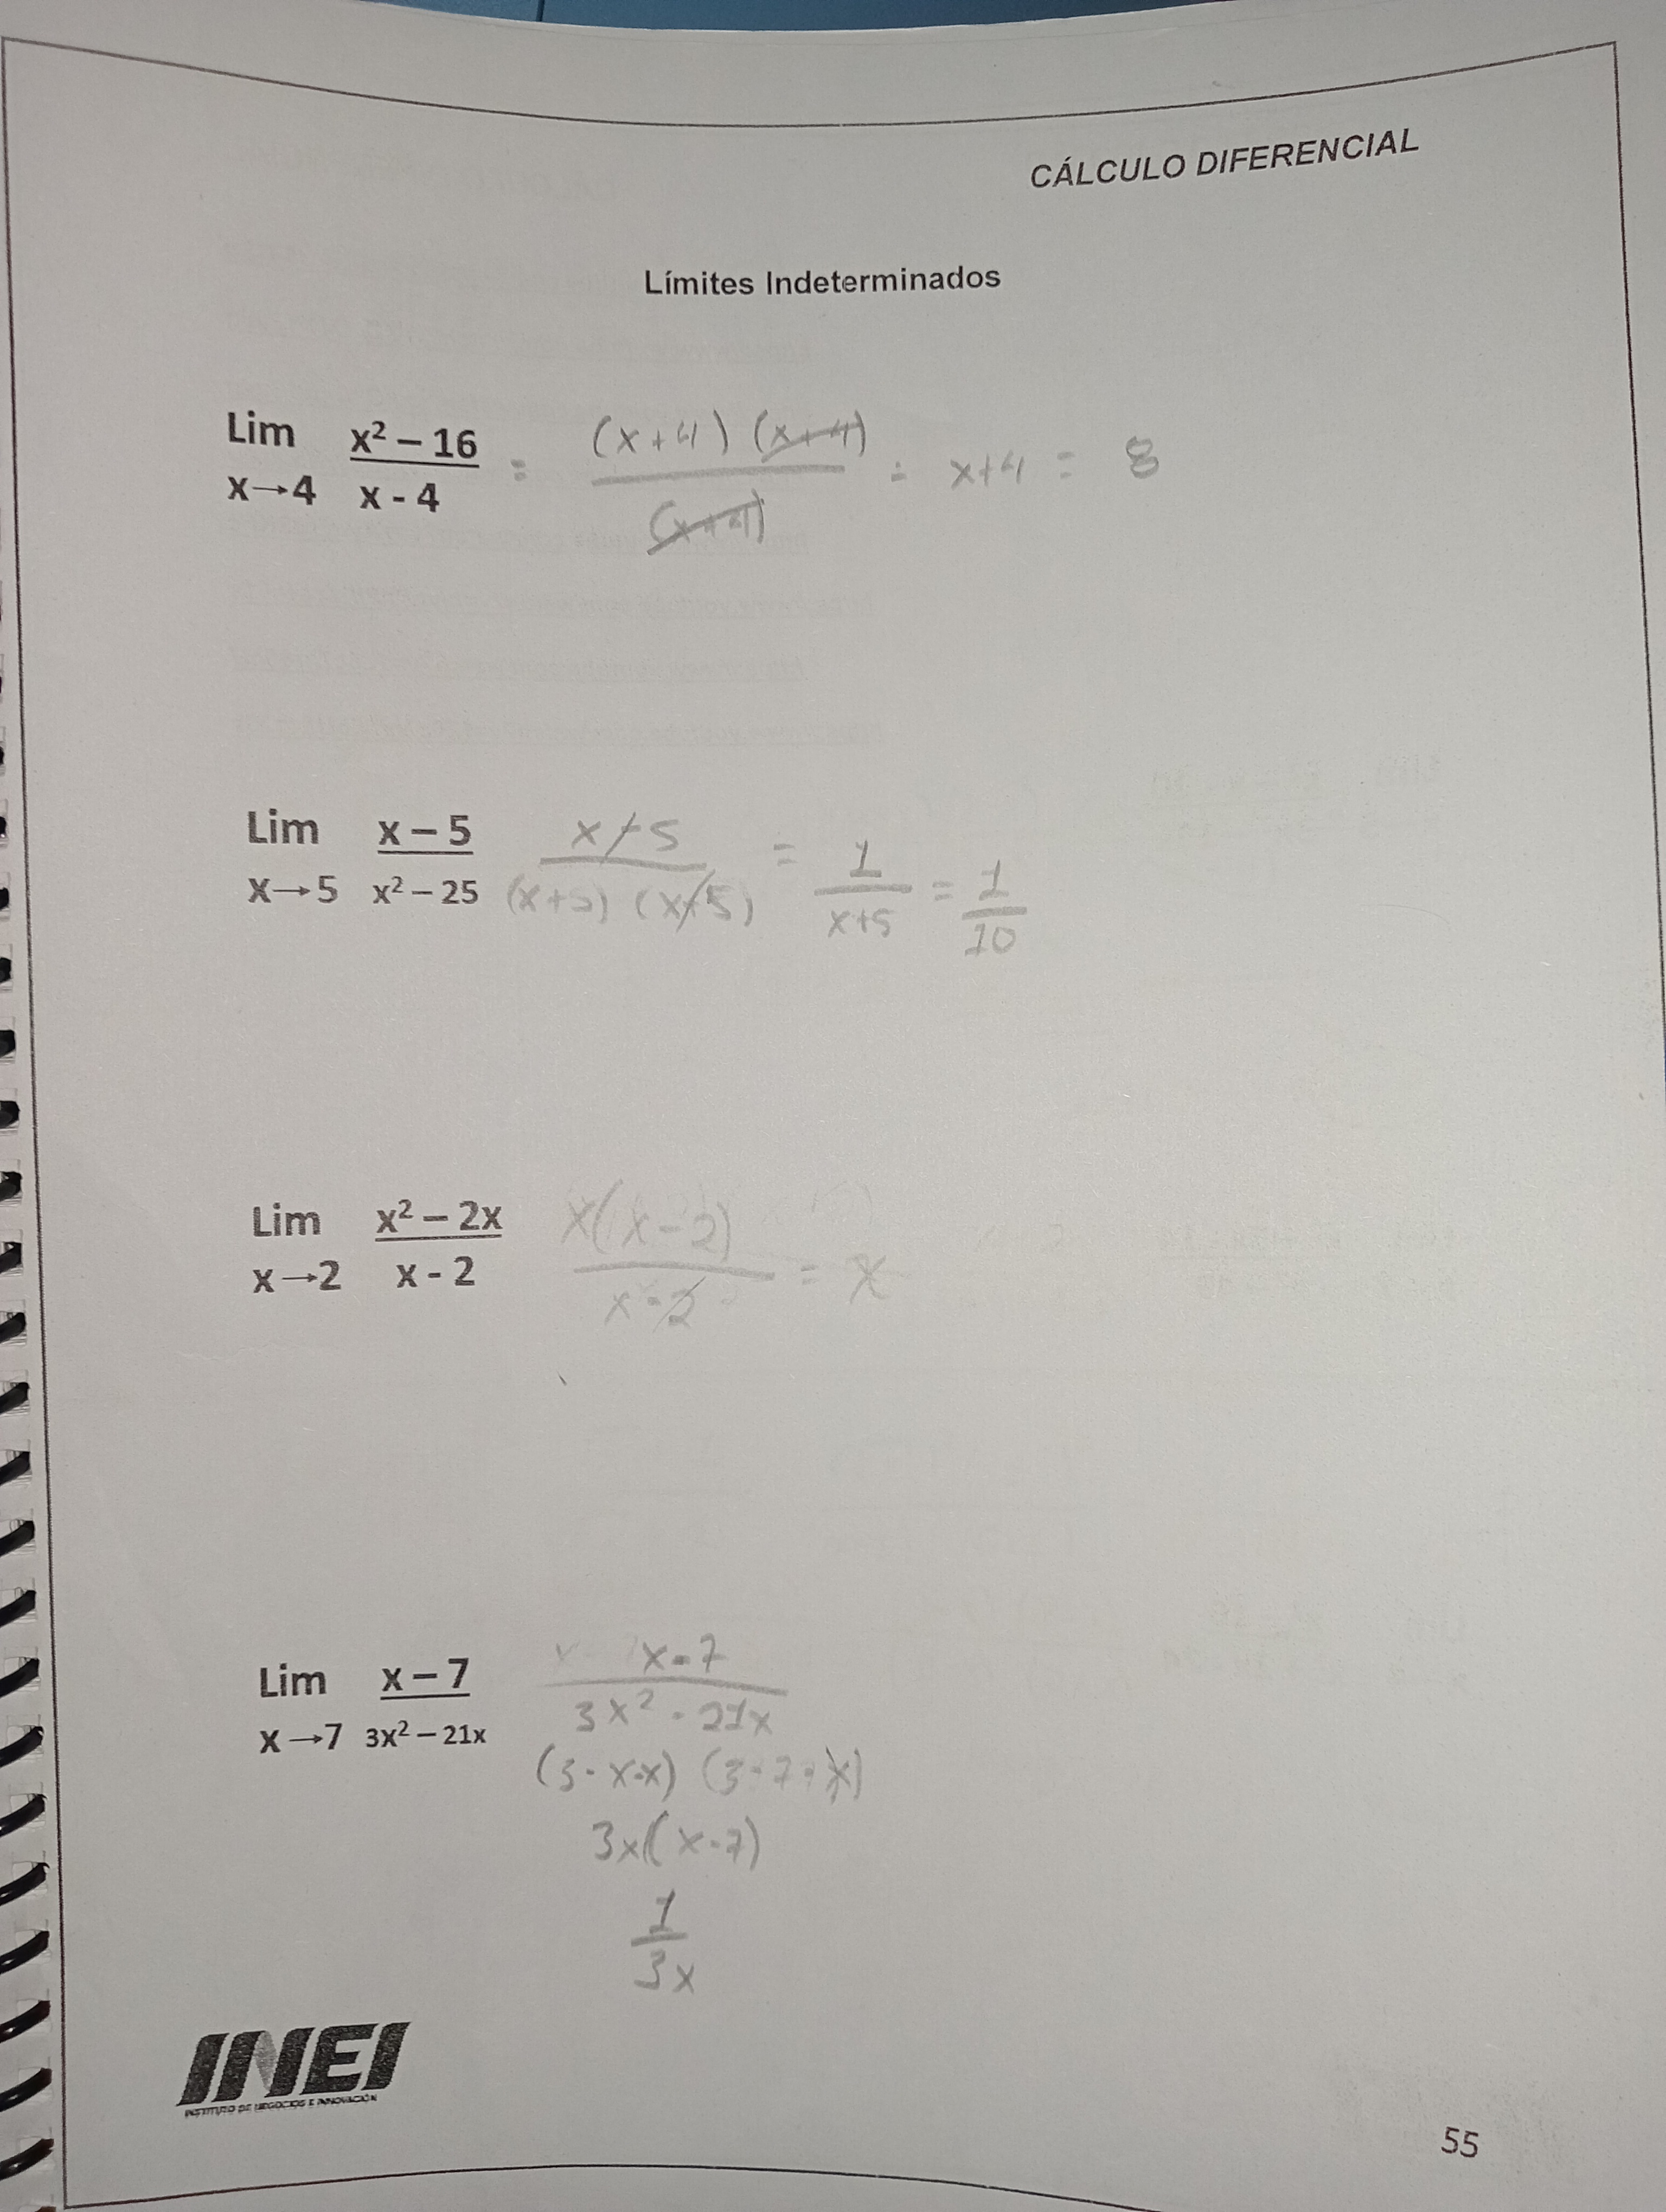 CÁLCULO DIFERENCIAL
Límites Indeterminados
Lim x² – 16 = (x+4) (x+4) = x+4 = 8
x→4 x - 4 (x+4)
Lim x – 5 x-5 = 1 = 1
x→5 x² – 25 (x+5) (x-5) x+5 10
Lim x² – 2x x(x-2) = x
x→2 x - 2 x-2
Lim x – 7 x-7
x→7 3x² – 21x 3x² - 21x
(3·x·x) (3·7·x)
3x(x-7)
1
3x
INEI
INSTITUTO DE NEGOCIOS E INNOVACIÓN
55